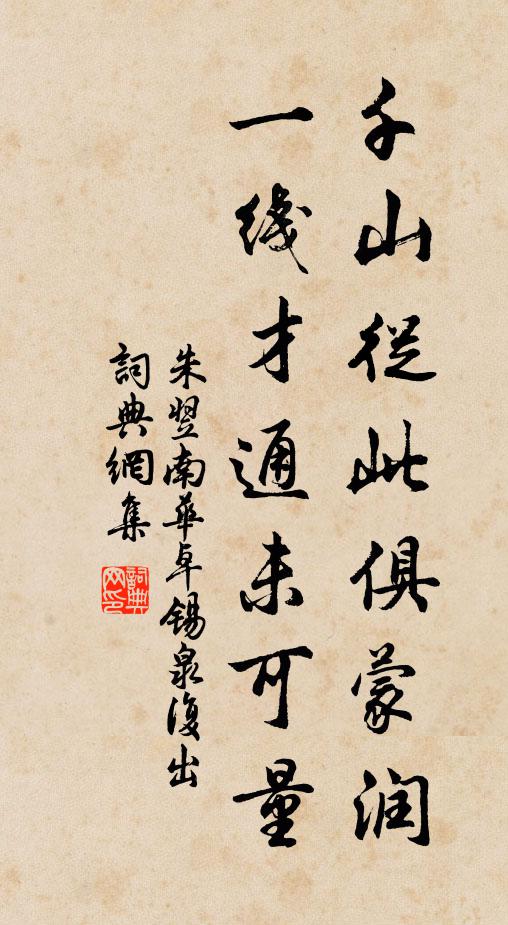 千山從此俱蒙润
一线才通未可量
朱翌南華卓锡泉復出
詞典網集
詞典网印